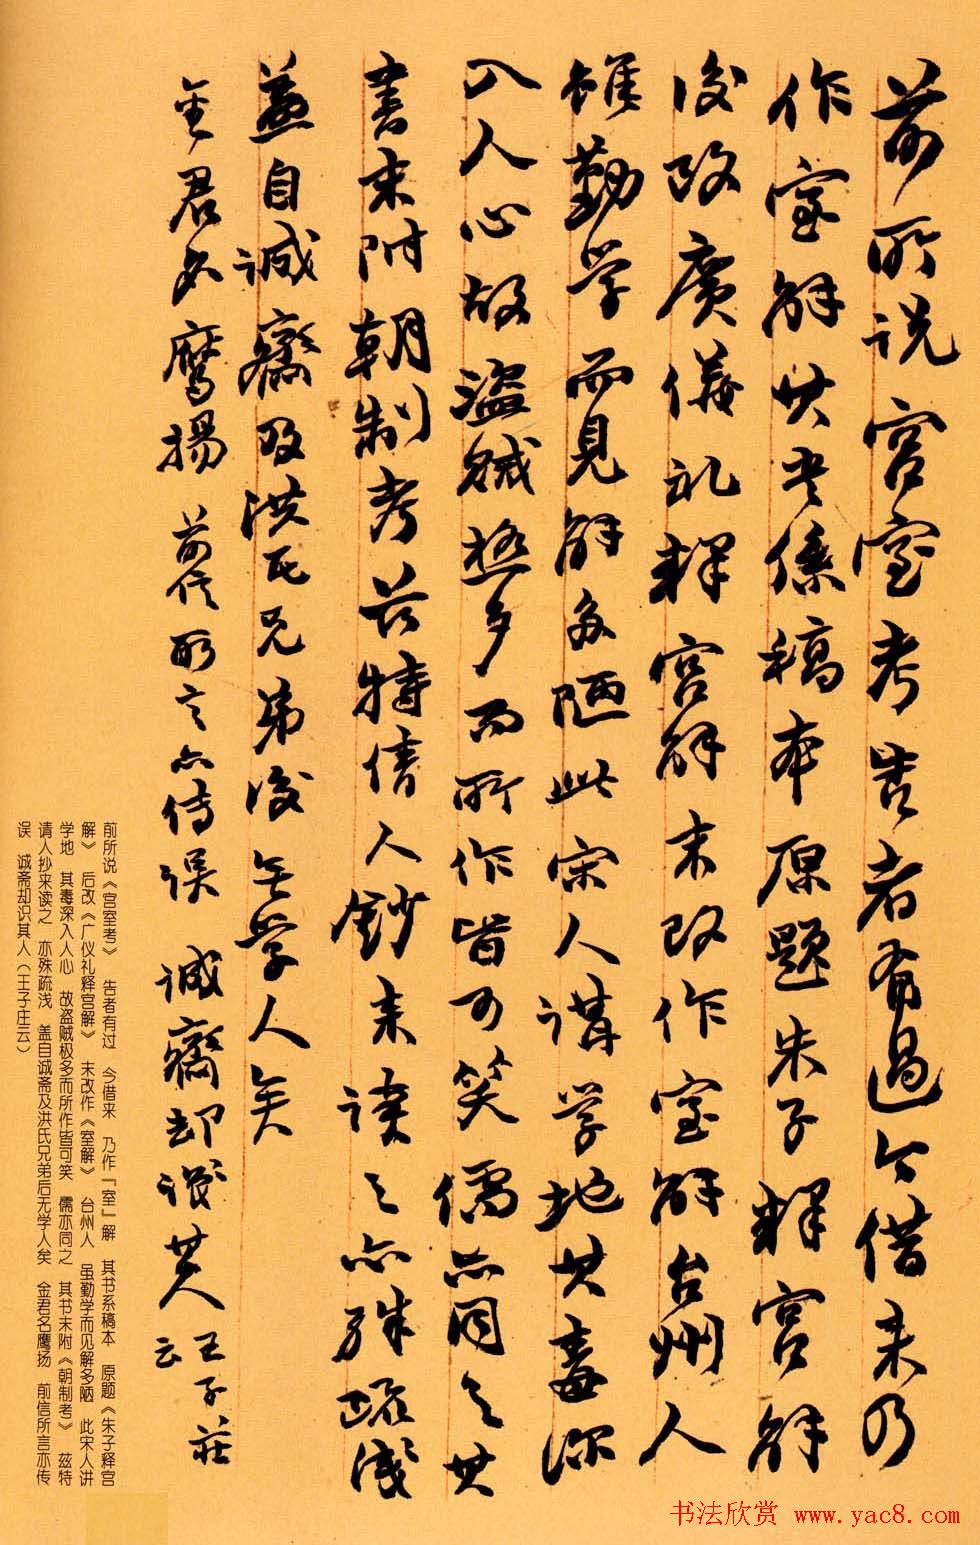 前所说宫室考告者有過今借来乃
作室解其书係稿本原题朱子釋宫解
後改廣儀礼釋宫解末改作室解台州人
雖勤学而見解多陋此宋人講学地其毒深
入人心故盜贼極多而所作皆可笑儒亦同之其
書末附朝制考兹特倩人鈔来读之亦殊疏淺
蓋自诚齋及洪氏兄弟後无学人矣
金君名鹰揚 前信所言亦传误 诚齋却识其人 王子莊
云
前所说《宫室考》 告者有过 今借来 乃作『室』解 其书系稿本 原题《朱子释宫
解》 后改《广仪礼释宫解》 末改作《室解》 台州人 虽勤学而见解多陋 此宋人讲
学地 其毒深入人心 故盗贼极多而所作皆可笑 儒亦同之 其书末附《朝制考》 兹特
请人抄来读之 亦殊疏浅 盖自诚斋及洪氏兄弟后无学人矣 金君名鹰扬 前信所言亦传
误 诚斋却识其人（王子庄云）
书法欣赏 www.yac8.com